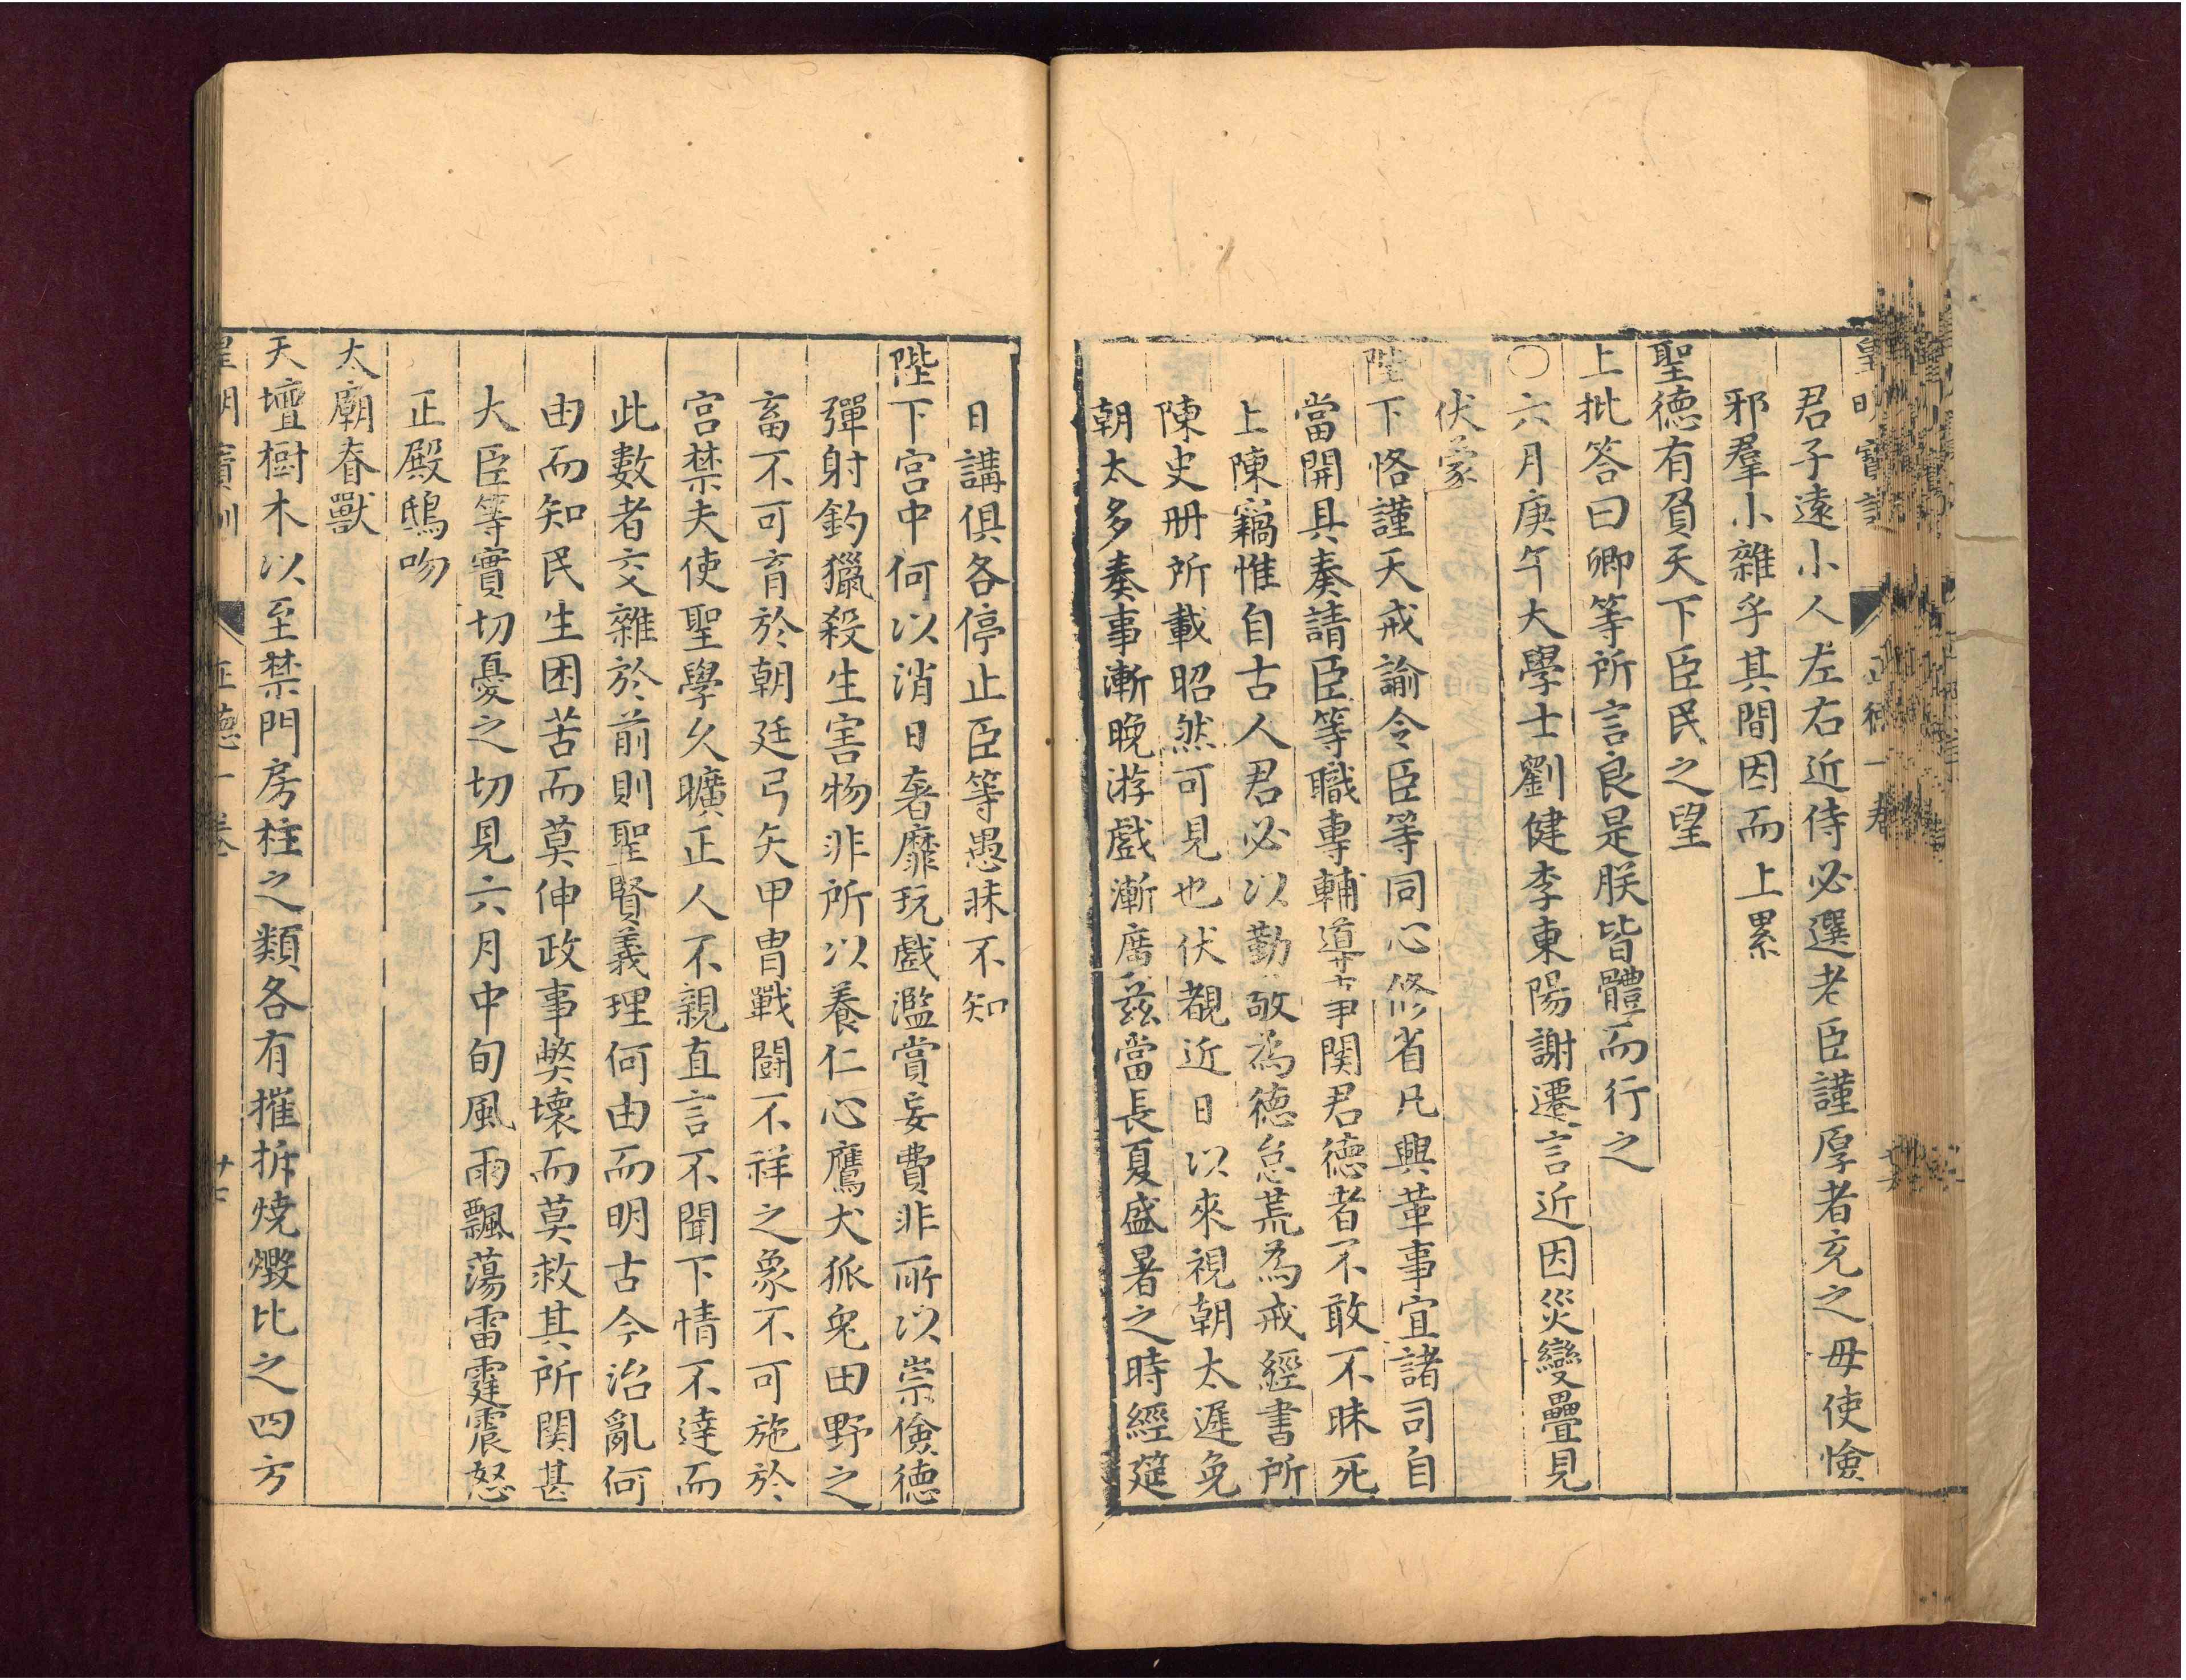 皇明寶訓 正德一卷
君子遠小人左右近侍必選老臣謹厚者充之毋使憸
邪羣小雜乎其間因而上累
聖德有負天下臣民之望
上批答曰卿等所言良是朕皆體而行之
○六月庚午大學士劉健李東陽謝遷言近因災變疊見
伏蒙
陛下恪謹天戒諭令臣等同心修省凡興革事宜諸司自
當開具奏請臣等職專輔導事関君德者不敢不昧死
上陳竊惟自古人君必以勤敬為德怠荒為戒經書所
陳史册所載昭然可見也伏覩近日以來視朝太遲免
朝太多奏事漸晚游戲漸廣茲當長夏盛暑之時經筵
日講俱各停止臣等愚昧不知
陛下宮中何以消日奢靡玩戲濫賞妄費非所以崇儉德
彈射釣獵殺生害物非所以養仁心鷹犬狐兔田野之
畜不可育於朝廷弓矢甲冑戰鬪不祥之象不可施於
宮禁夫使聖學久曠正人不親直言不聞下情不達而
此數者交雜於前則聖賢義理何由而明古今治亂何
由而知民生困苦而莫伸政事弊壞而莫救其所関甚
大臣等實切憂之切見六月中旬風雨飄蕩雷霆震怒
正殿鴟吻
太廟脊獸
天壇樹木以至禁門房柱之類各有摧拆燒燬比之四方
皇明寶訓 正德一卷